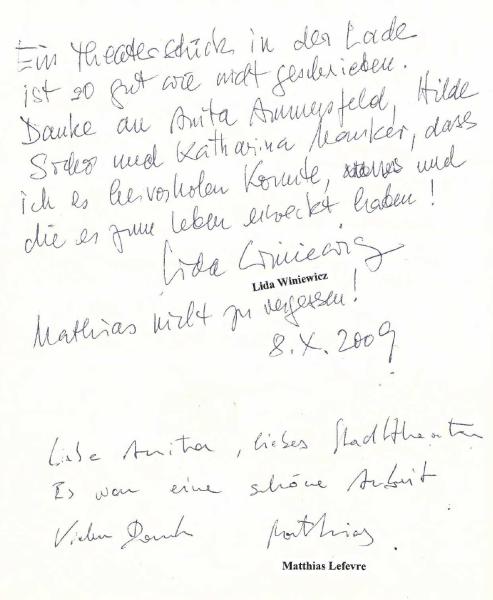 Ein Theaterstück in der Lade
ist so gut wie nicht geschrieben.
Danke an Anita Ammersfeld, Hilde
Sochor und Katharina, dass
ich es hervorholen konnte, und
die es zum Leben erweckt haben!
Lida Winiewicz
Lida Winiewicz
Mathias nicht zu vergessen!
8. X. 2009
Liebe Anita, liebes Stadttheater
Es war eine schöne Arbeit
Vielen Dank Matthias
Matthias Lefevre